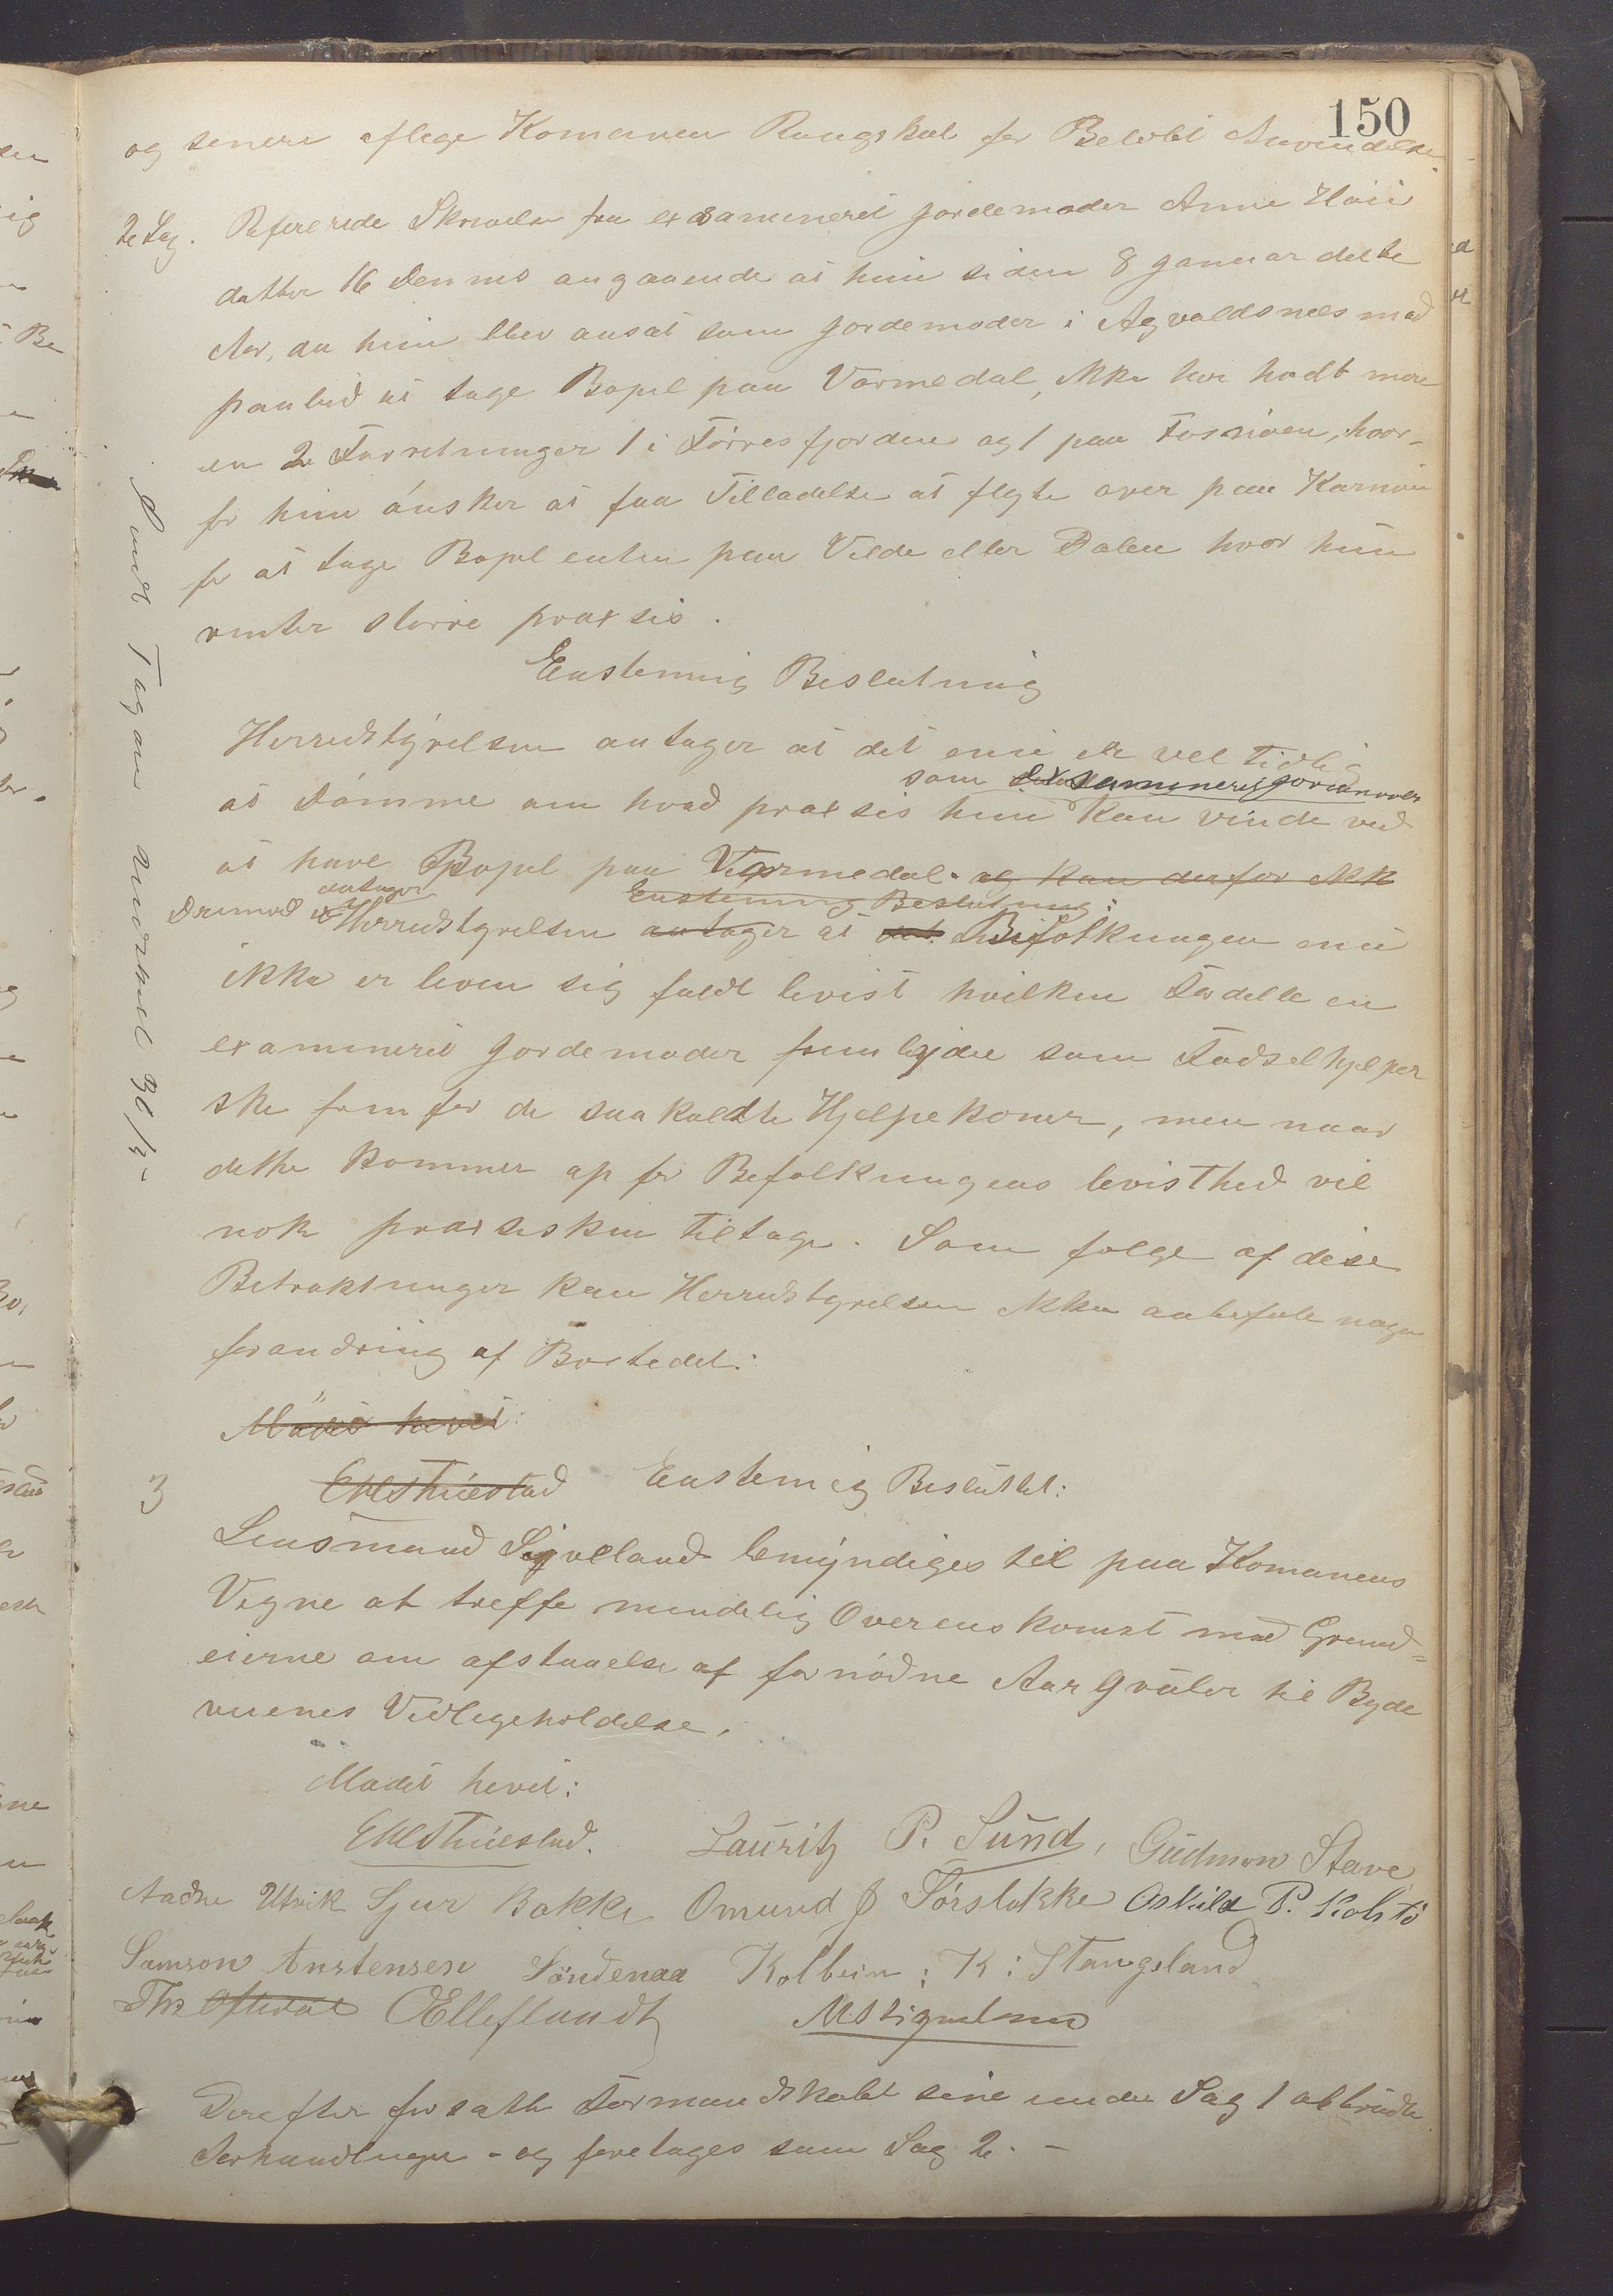 150
og senere aflege Komunen Rengskab for Beløbet Anvendelse.
2 Sag. Refererede Skrivelse fra exsamineret Jordemoder Anne Hövi
datter 16 dennes angaaende at hun siden 8 Januar dette
Aar, da hun blev ansat som Jordemoder i Agvaldsnes med
paalud at tage Bopel paa Vormedal, ikke har hadt mere
en 2 Foretninger 1 i Förresfjorden og 1 paa Fosnöen, hvor-
for hun önsker at faa Tilladelse at flyte over paa Karmöen
for at tage Bopel enten paa Velde eller Dalen hvor hun
venter störe praxsis.
Enstemig Beslutning
Herredstyrelsen antager at det enu er vel tidlig
som exsamineret Jordemoder
at Dömme om hvad praxsis hun kan vinde ved
at have Bopel paa Vormedal. og kan derfor ikke
antager Enstemmig Beslutning:
Drimod Herredstyrelsen antager at det Befolkningen enu
ikke er leven sig fuldt bevist hvilken Fordelle en
examineret Jordemoder frembyder som Fødselhjelper
ske fremfor de saakaldte Hjelpekoner, men naar
dette kommer op for Befolkningens bevisthed vil
nok praxsisken tiltage. Som følge af dise
Betraktninger kan Herredstyrelsen ikke anbefale nogen
forandring af Bostedet.
Mödet hevet:
3 Enstemig Besluttet:
Lensmand Sigveland bemyndiges til paa Komunens
Vegne at treffe mindelig Overenskomst med Grund=
eierne om afstaaelse af fornödne Aurgruber til Bygde
veienes Vedligeholdelse.
Mødet hevet:
Lauritz P. Sund, Gudmon Stave
Aadne Utvik Sjur Bakke Omund J Sörstokke Oskild P. Kolstö
Samson Anstensen Söndenaa Kolbein K: Stangeland
Ths Oftedal OElleflandt
Derefter forsatte Formandskabet sine under Sag 1 afbrudte
Forhandlinger - og foretages som Sag 2. -